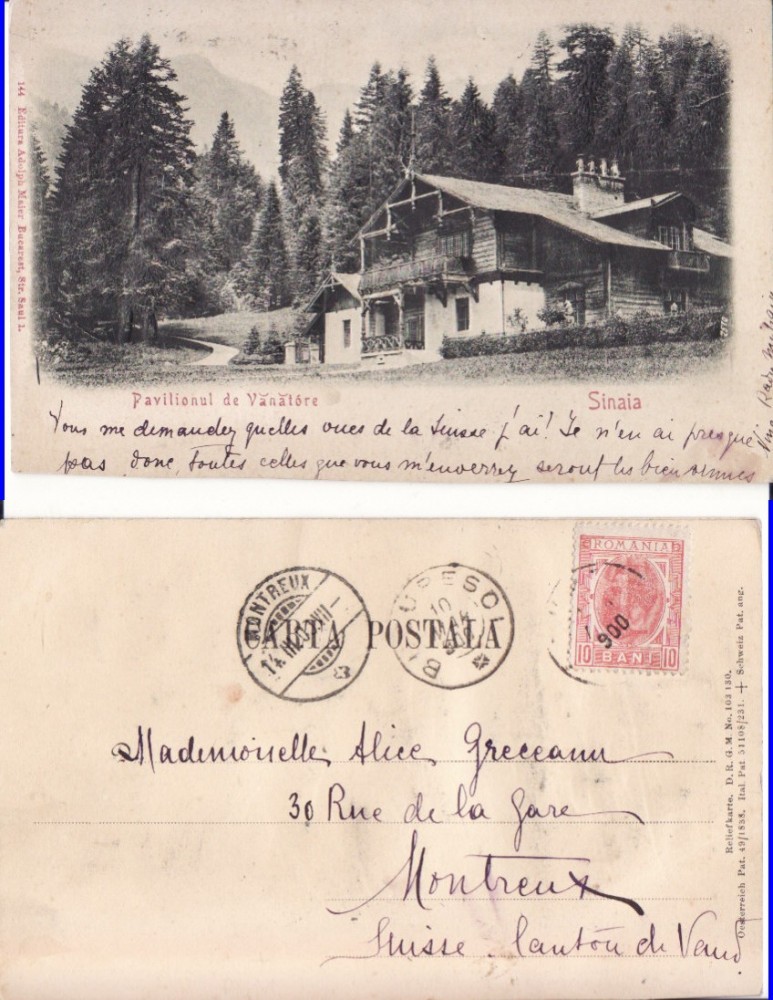 144 Editura Adolph Maier Bucarest, Str. Saul 1.
Pavilionul de Vănătóre
Sinaia
Vous me demandez quelles vues de la Suisse j'ai! Je n'en ai presque
pas donc, toutes celles que vous m'enverrez seront les bien venues
CARTA POSTALA
MONTREUX
14 III
10
ROMANIA
900
10 BANI 10
Mademoiselle Alice Greceanu
30 Rue de la Gare
Montreux
Suisse. Canton de Vaud
Reliefkarte. D. R. G. M. No. 163 130.
Oesterreich Pat. 49/1838. Ital. Pat. 51108/231. + Schweiz Pat. ang.